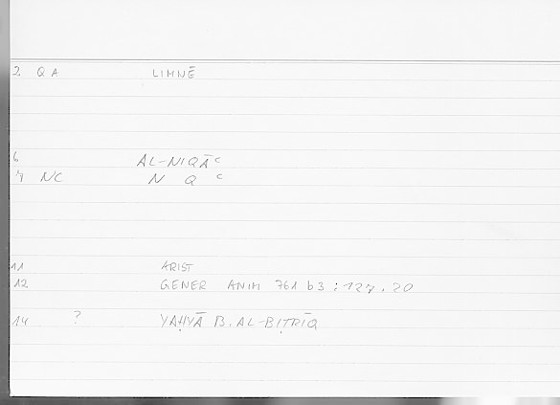 2 QA LIMNĒ
6 AL-NIQĀᶜ
7 NC N Q ᶜ
11 ARIST
12 GENER ANIM 761 b3 ; 127, 20
14 ? YAḤYĀ B. AL-BIṬRĪQ